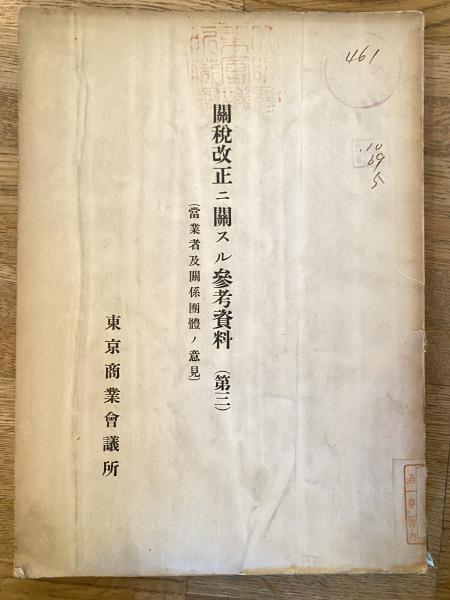 461
10
69
5
關稅改正ニ關スル參考資料(第三)
(當業者及關係團體ノ意見)
東京商業會議所